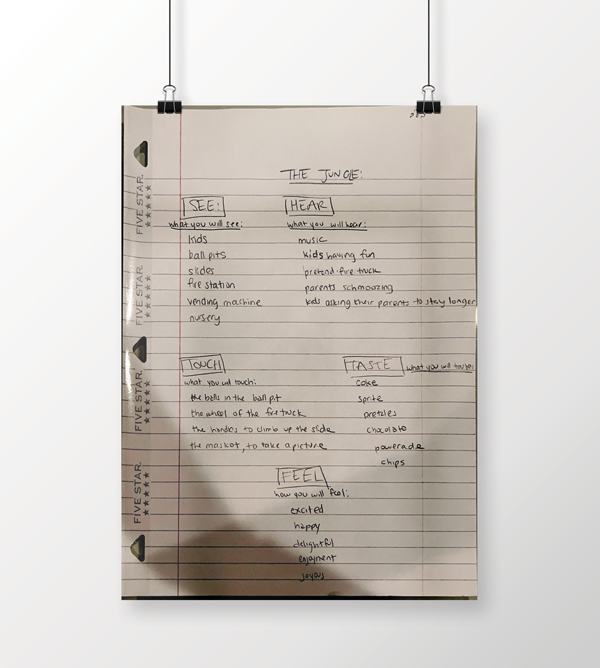 THE JUNGLE:
SEE:
what you will see:
kids
ball pits
slides
fire station
vending machine
nursery
HEAR
what you will hear:
music
kids having fun
pretend-fire truck
parents schmoozing
kids asking their parents to stay longer
TOUCH
what you will touch:
the balls in the ball pit
the wheel of the fire truck
the handles to climb up the slide
the maskot, to take a picture
TASTE what you will taste:
coke
sprite
pretzles
chocolate
powerade
chips
FEEL
how you will feel:
excited
happy
delightful
enjoyment
joyous
FIVE STAR.
FIVE STAR.
FIVE STAR.
FIVE STAR.